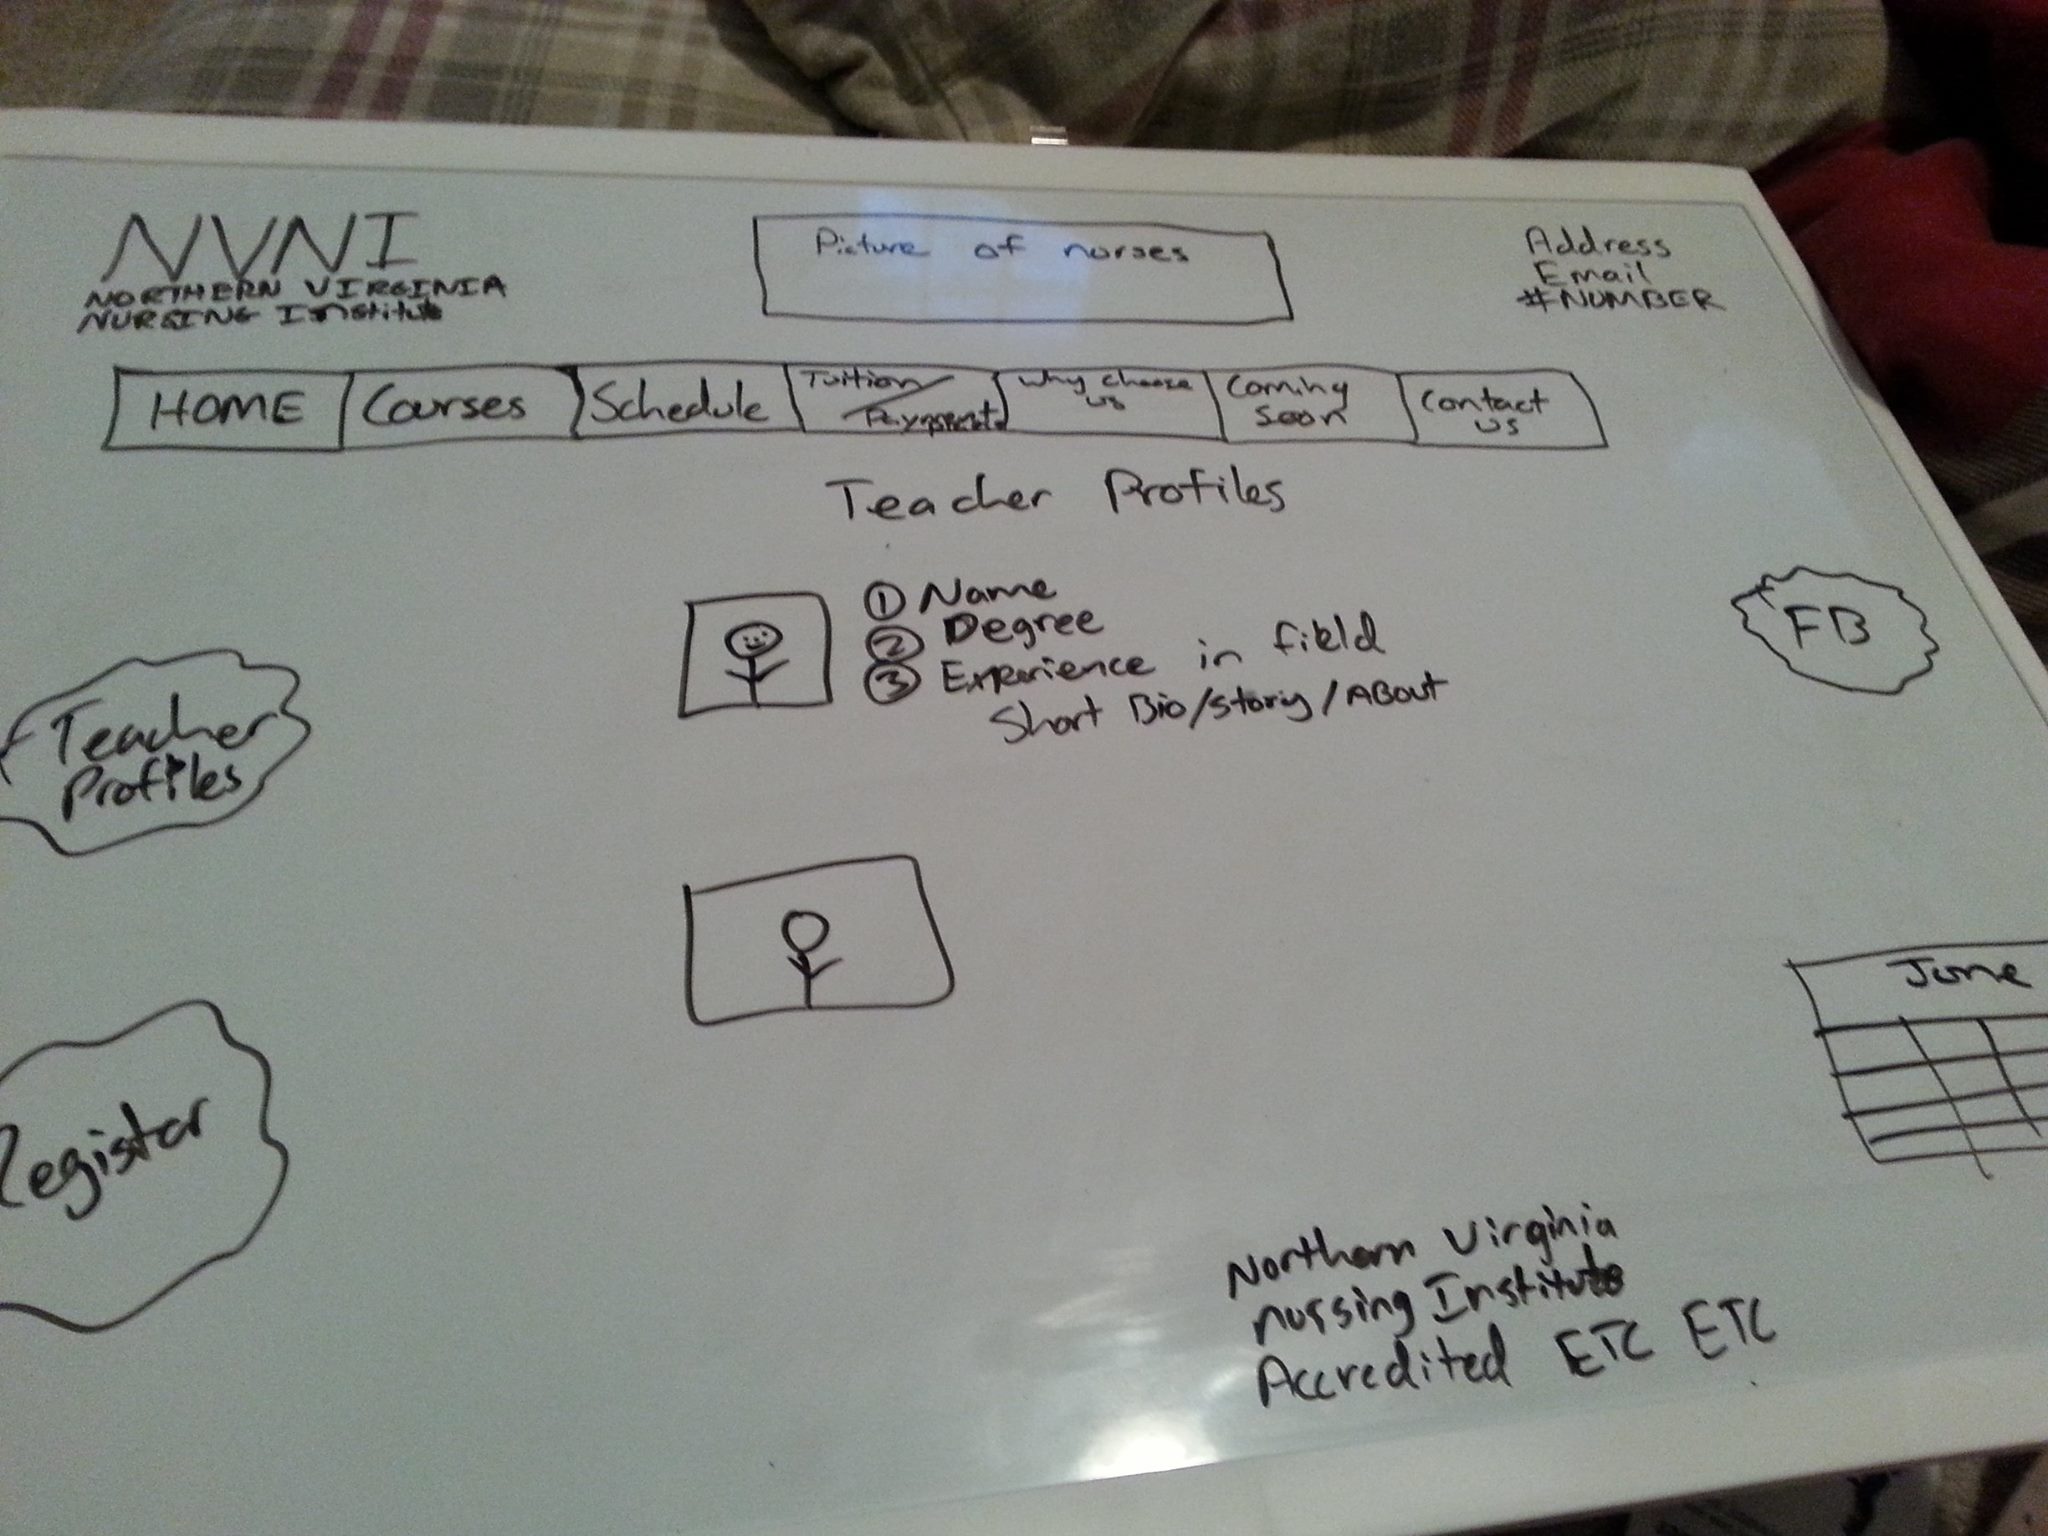 NVNI
NORTHERN VIRGINIA
NURSING Institute
Picture of nurses
Address
Email
#NUMBER
HOME
Courses
Schedule
Tuition/
Payment
Why choose
us
Coming
soon
Contact
us
Teacher Profiles
① Name
② Degree
③ Experience in field
Short Bio/story/ABout
FB
Teacher
Profiles
June
Register
Northern Virginia
nursing Institute
Accredited ETC ETC